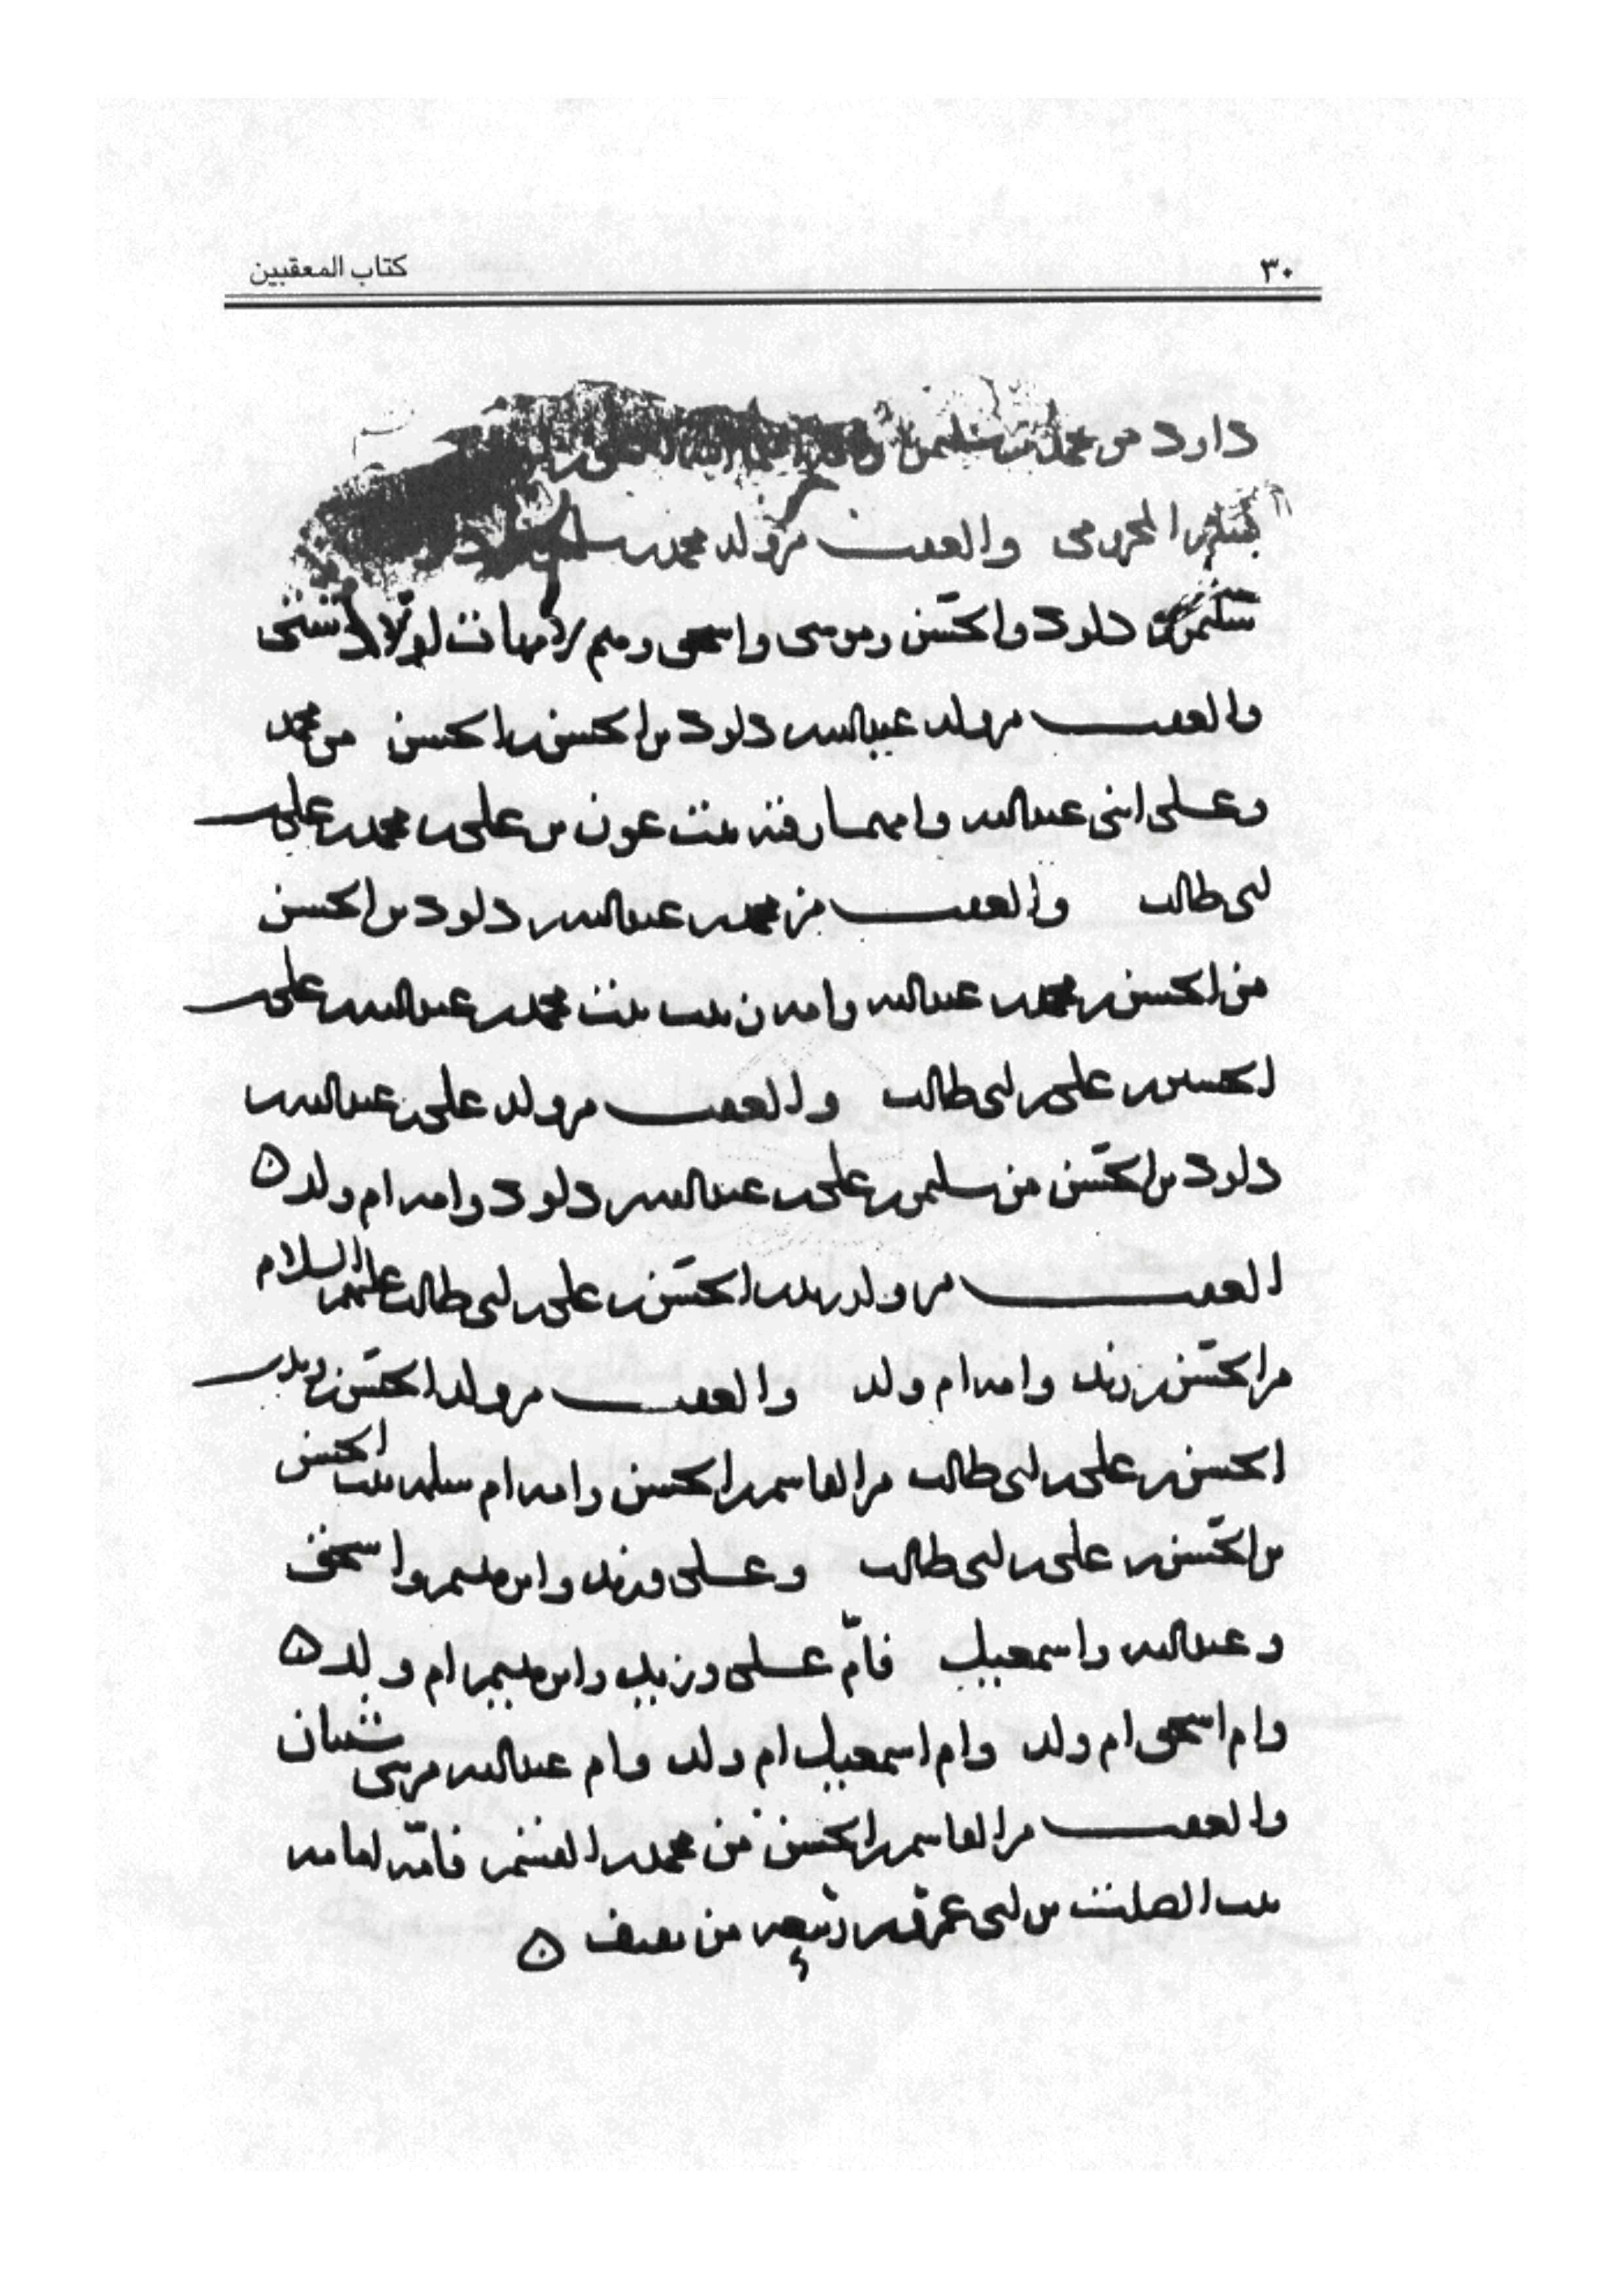 ٣٠
كتاب المعقبين
داود من محمد بن سليمن
المخزومي والعقب من ولد محمد بن
سليمن داود والحسن وموسى واسحق ومنهم لامهات اولاد شتى
والعقب من ولد عبدالله بن داود بن الحسن بن الحسن من محمد
وعلى ابنى عبدالله وامهما رقيه بنت عون بن على بن محمد بن على بن
ابى طالب والعقب من محمد بن عبدالله بن داود بن الحسن
من الحسن بن محمد بن عبدالله وامه زينب بنت محمد بن عبدالله بن على بن
الحسين بن على بن ابى طالب والعقب من ولد على بن عبدالله بن
داود بن الحسن من سليمن بن على بن عبدالله بن داود وامه ام ولد ه
العقب من ولد زيد بن الحسن بن على بن ابى طالب عليهم السلام
من الحسن بن زيد وامه ام ولد والعقب من ولد الحسن بن زيد بن
الحسن بن على بن ابى طالب من القاسم بن الحسن وامه ام سلمه بنت الحسين
بن الحسن بن على بن ابى طالب وعلى وزيد وابرهيم واسحق
وعبدالله واسمعيل فام على وزيد وابرهيم ام ولد ه
وام اسحق ام ولد وام اسمعيل ام ولد وام عبدالله من بنى شيبان
والعقب من القاسم بن الحسن من محمد بن القسم فامه امامه
بنت الصلت بن ابى عمرو بن ربيعه من ثقيف ه